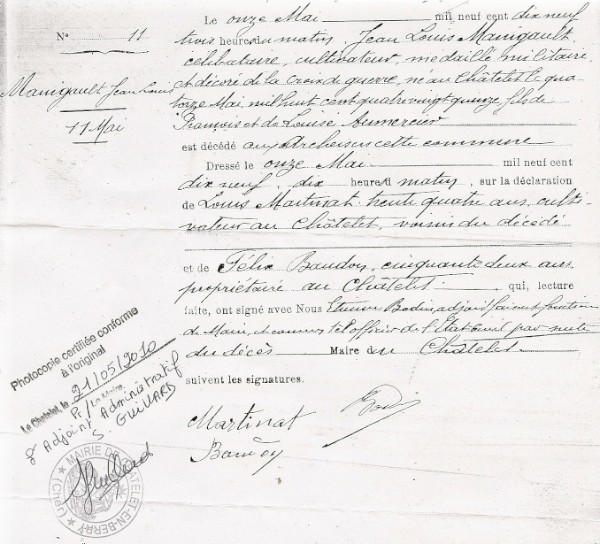 Le onze Mai mil neuf cent dix neuf
N° 11
trois heures du matin, Jean Louis Manigault
célibataire, cultivateur, médaillé militaire
et décoré de la croix de guerre, né au Châtelet le qua
torze Mai mil huit cent quatre vingt quinze, fils de
François et de Louise Lemercier
Manigault Jean Louis
11 Mai
est décédé aux Archers en cette commune
Dressé le onze Mai mil neuf cent
dix neuf, dix heures du matin, sur la déclaration
de Louis Martinat trente quatre ans, culti-
vateur au Châtelet, voisin du décédé
et de Félix Baudoy, cinquante deux ans,
propriétaire au Châtelet qui, lecture
faite, ont signé avec Nous Etienne Bodin, adjoint faisant fonction
de Maire, et comme tel officier de l'Etat Civil par suite
du décès Maire du Châtelet
suivent les signatures.
Martinat Bodin
Baudoy
Photocopie certifiée conforme
à l'original
Le Chatelet, le 21/05/2010
P/ Le Maire,
l'Adjoint Administratif
S. GUILLARD
MAIRIE DE CHATELET-EN-BERRY (Cher)